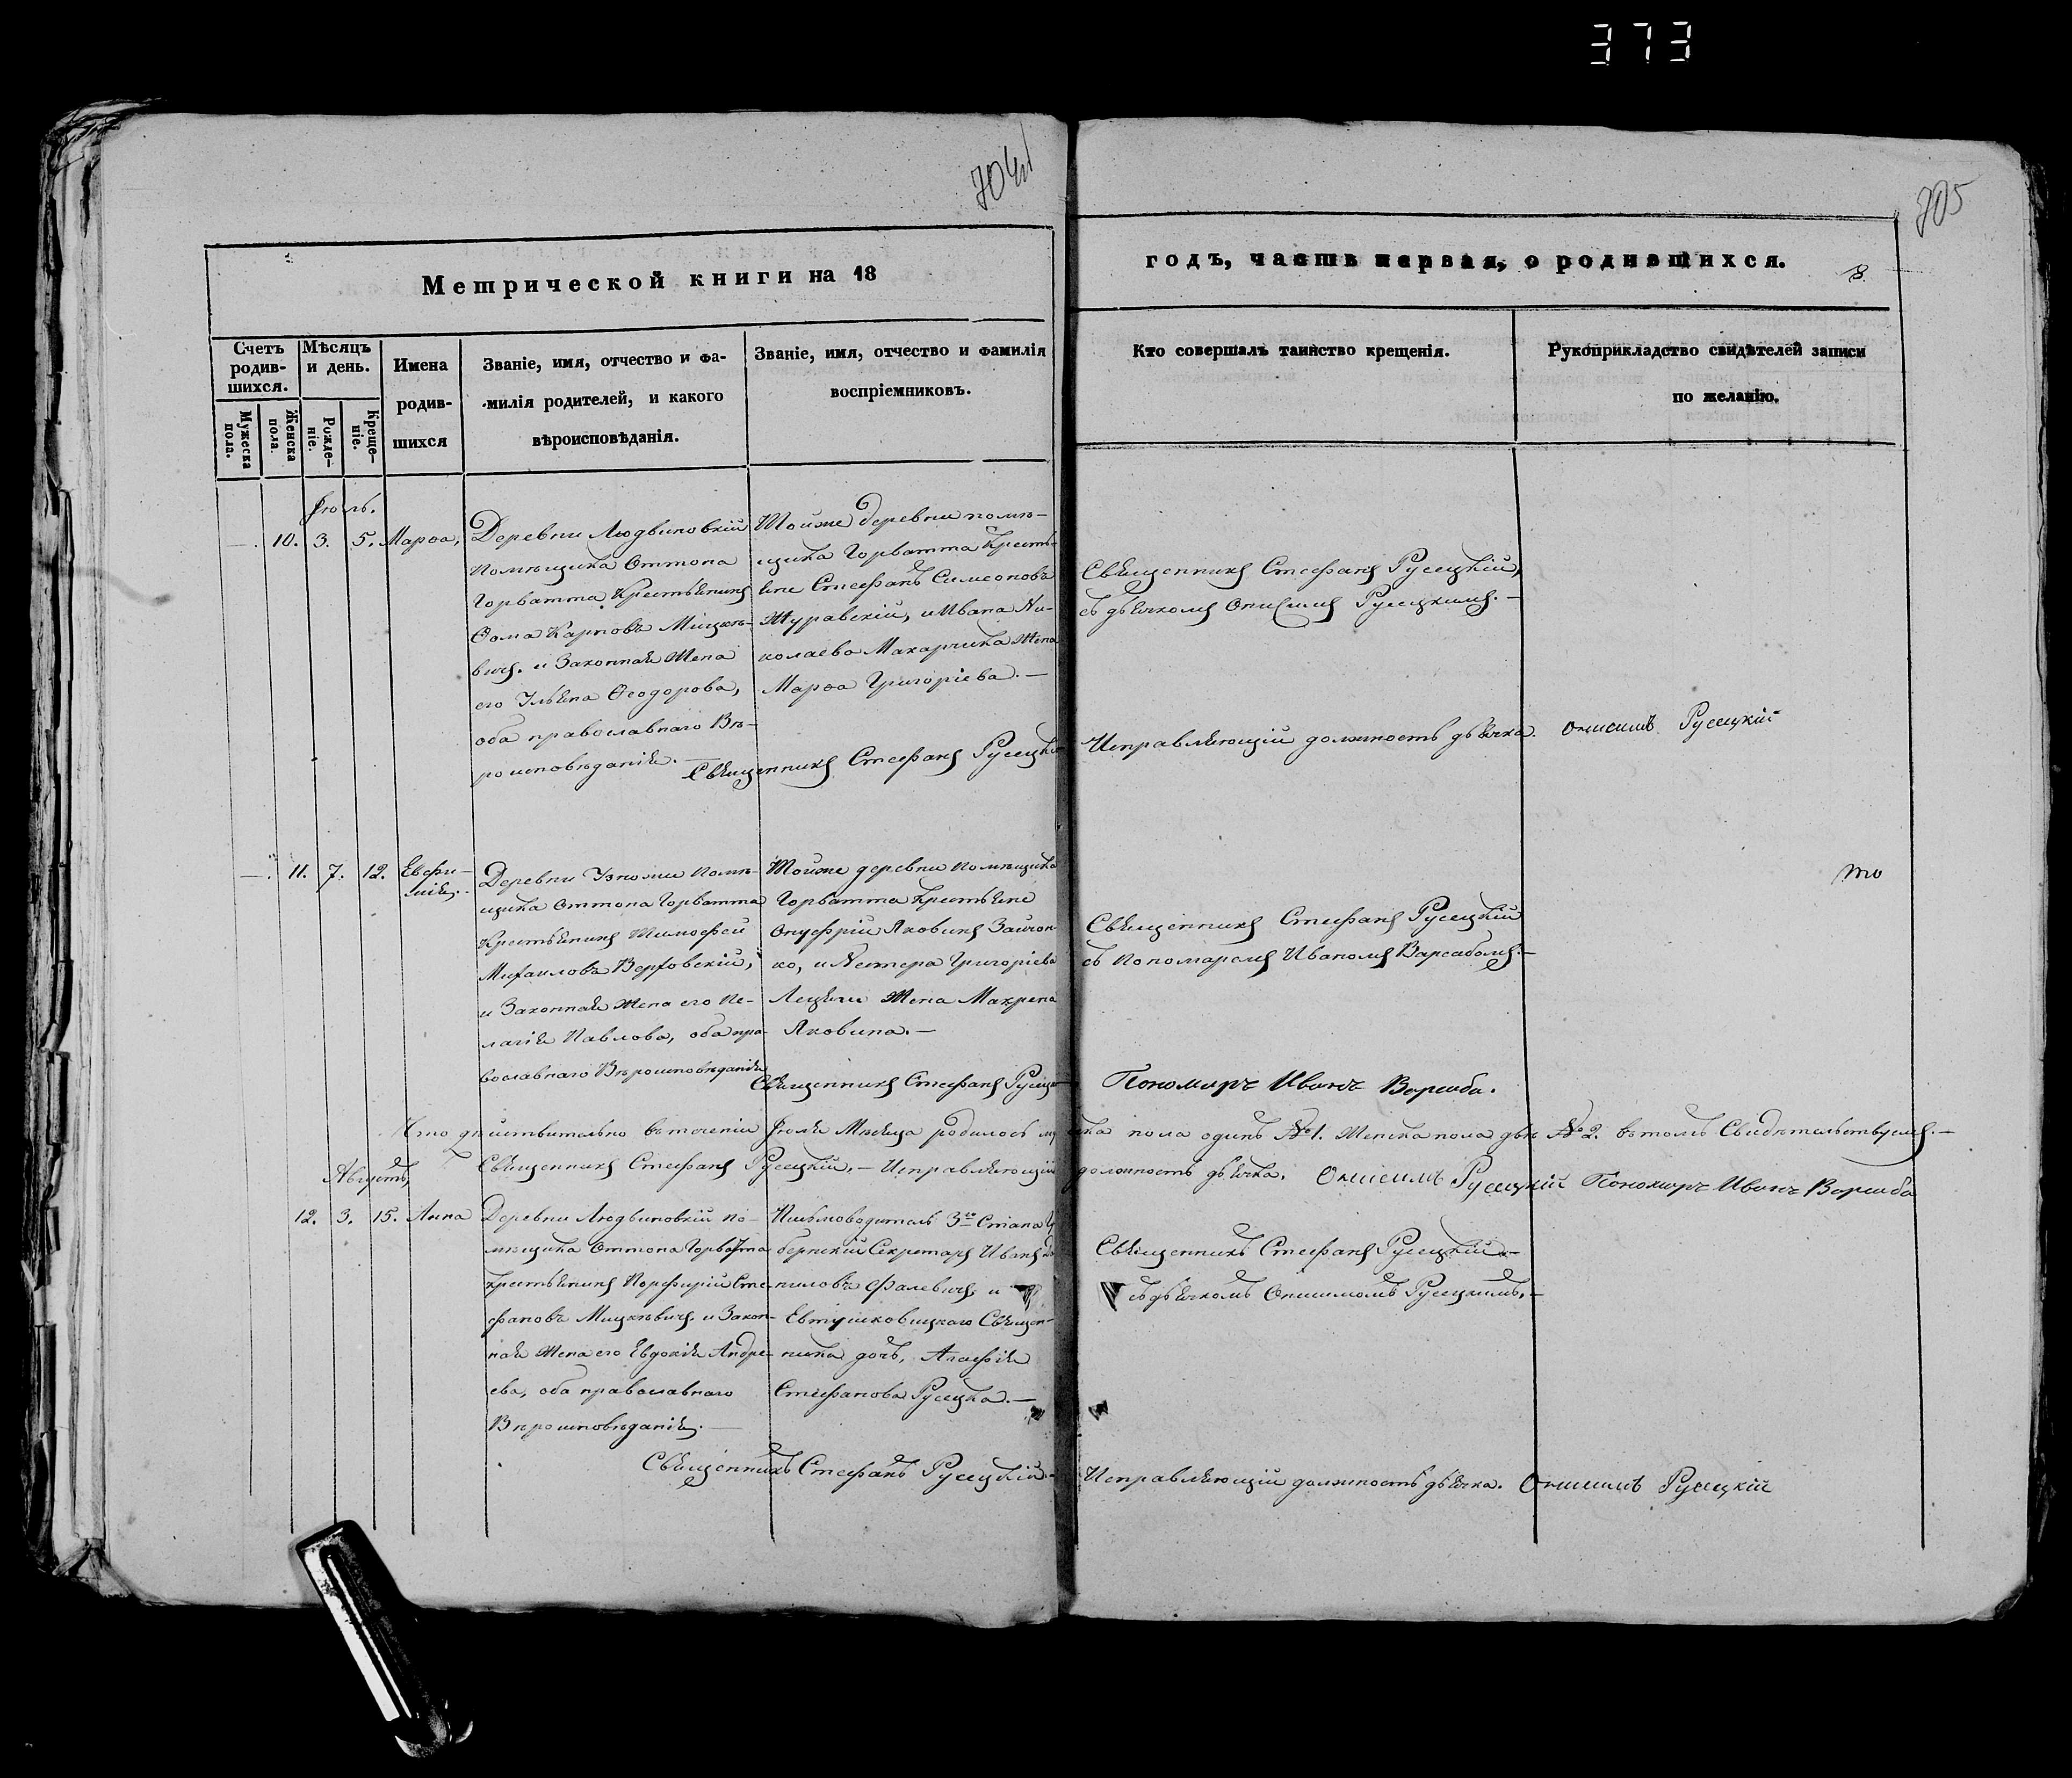 373
704
705
Метрической книги на 18
годъ, часть первая, о родившихся.
Счетъ родив-шихся.
Мѣсяцъ и день.
Имена родив-шихся
Званіе, имя, отчество и фа-
милія родителей, и какого
вѣроисповѣданія.
Званіе, имя, отчество и фамилія
воспріемниковъ.
Кто совершалъ таинство крещенія.
Рукоприкладство свидѣтелей записи
по желанію.
Мужеска пола.
Женска пола.
Рожде-ніе.
Креще-ніе.
Іюль.
10. 3. 5. Марѳа,
Деревни Людвиновкій
Помѣщика Оттона
Горватта Крестьянинъ
Ѳома Карповъ Мицкѣ-
вичъ. и Законная Жена
его Ѳеодорова,
оба православнаго Вѣ-
роисповѣданія. —
Тойже деревни помѣ-
щика Горватта Кресть-
яне Стефанъ Симеоновъ
Журавскій, и Ивана Ни-
колаева Макарчика Жена
Марѳа Григоріева. —
Священникъ Стефанъ Русецкій
Священникъ Стефанъ Русецкій,
съ дьячкомъ Русецкимъ. —
Исправляющій должность дьячка. Онисимъ Русецкій
11. 7. 12. Евфи-
мія.
Деревни Помѣ-
щика Оттона Горватта
Крестьянинъ Тимофей
Михаиловъ Верховскій,
и Законная Жена его Пе-
лагія Павлова, оба пра-
вославнаго Вѣроисповѣданія
Тойже деревни Помѣщика
Горватта Крестьяне
Онуфрій Яковинъ
и Нестера Григоріева
Жена Макрена
Яковина. —
Священникъ Стефанъ
Священникъ Стефанъ Русецкій
съ Пономаремъ Иваномъ
Пономарь Иванъ
Что дѣйствительно въ теченіи Іюля Мѣсяца родилось пола одинъ № 1. Женска пола двѣ № 2. въ томъ Свидѣтельствуемъ. —
Священникъ Стефанъ Русецкій. — Исправляющій должность дьячка. Онисимъ Русецкій Пономарь Иванъ
Августъ,
12. 3. 15. Анна
Деревни Людвиновкій По-
мѣщика Оттона Горватта
Крестьянинъ Порфирій Сте-
фановъ Мицкѣвичъ. и Закон-
ная Жена его Евдокія Андре-
ева, оба православнаго
Вѣроисповѣданія. —
Письмоводитель 3го Стана Гу
бернскій Секретарь Иванъ
ниловъ Фалевичъ, и
Евтушковицкаго Священ-
ника дочь, Агафія
Стефанова Русецка. —
Священникъ Стефанъ Русецкій. —
Священникъ Стефанъ Русецкій —
съ дьячкомъ Онисимомъ Русецкимъ. —
Исправляющій должность дьячка. Онисимъ Русецкій